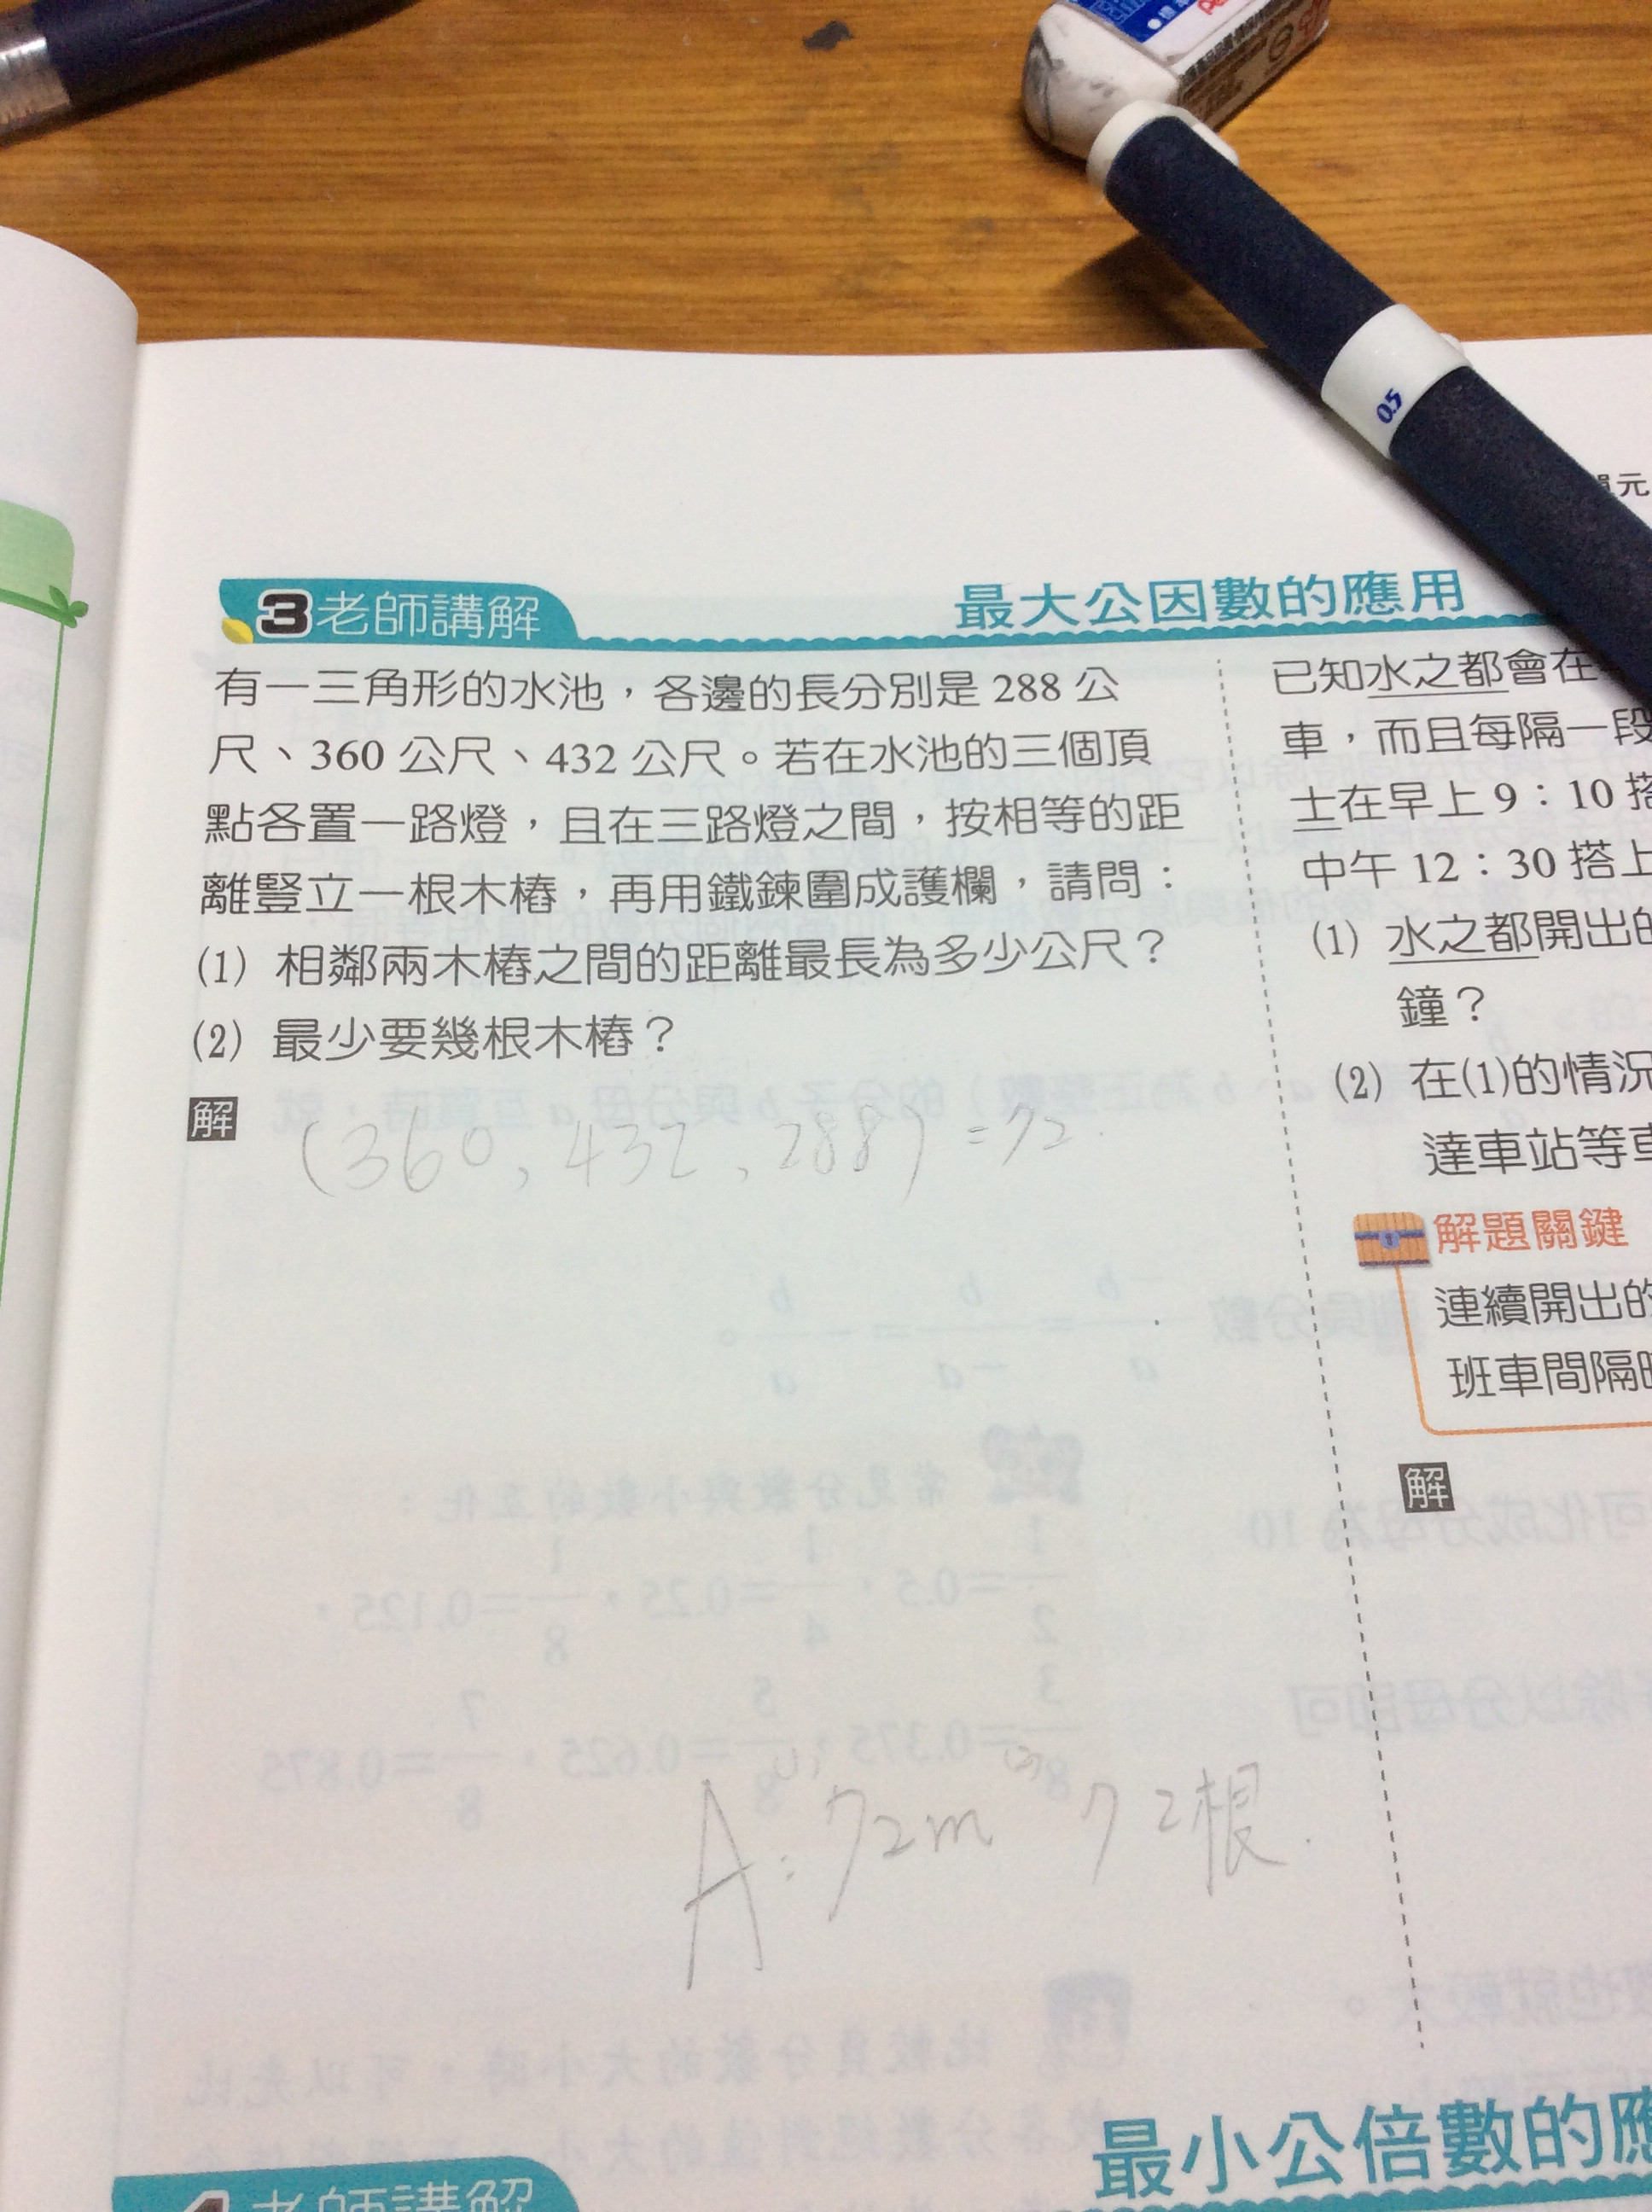 0.5
單元
3 老師講解
最大公因數的應用
有一三角形的水池，各邊的長分別是 288 公
尺、360 公尺、432 公尺。若在水池的三個頂
點各置一路燈，且在三路燈之間，按相等的距
離豎立一根木樁，再用鐵鍊圍成護欄，請問：
(1) 相鄰兩木樁之間的距離最長為多少公尺？
(2) 最少要幾根木樁？
解
(360, 432, 288) = 72
A: (1) 72m (2) 72根.
已知水之都會在
車，而且每隔一段
士在早上 9：10 搭
中午 12：30 搭上
(1) 水之都開出的
鐘？
(2) 在(1)的情況
達車站等車
解題關鍵
連續開出的
班車間隔時
解
4 老師講解
最小公倍數的應